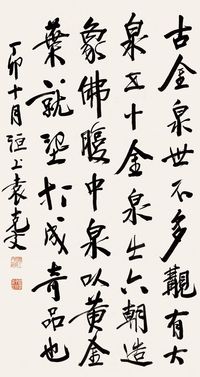 古金泉世不多覯有大
泉五十金泉出六朝造
象佛腹中泉以黃金
葉就打成奇品也
丁卯十月洹上袁克文